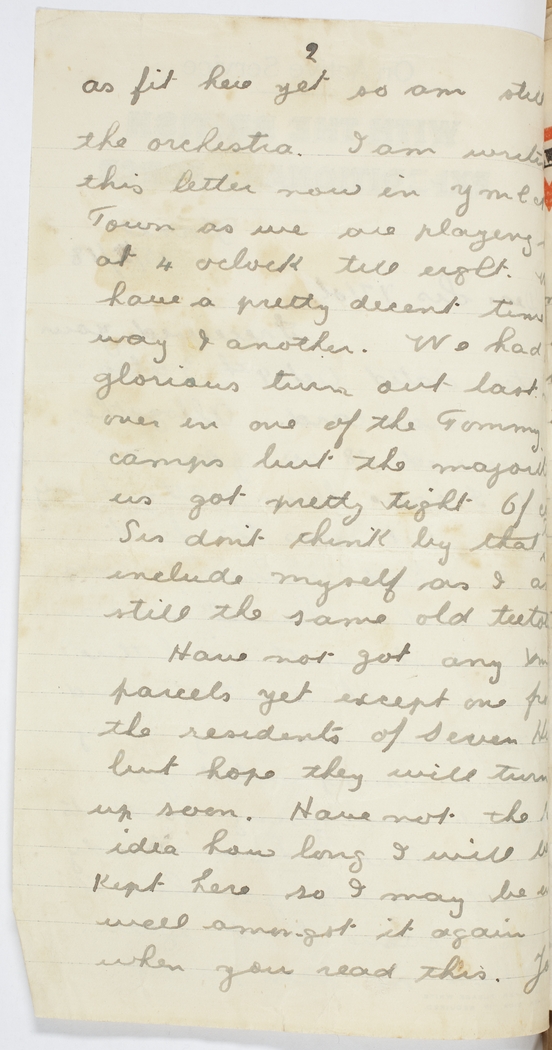 2
as fit here yet so am
the orchestra. I am
this letter now in
Town as we are playing
at 4 oclock till eight.
have a pretty decent
way & another. We had
glorious turn out last
over in one of the Tommy
camps but the
us got pretty tight
Sis don't think by that
include myself as I
still the same old
Have not got any
parcels yet except one
the residents of Seven
but hope they will turn
up soon. Have not the
idea how long I will
kept here so I may be
well amongst it again
when you read this.